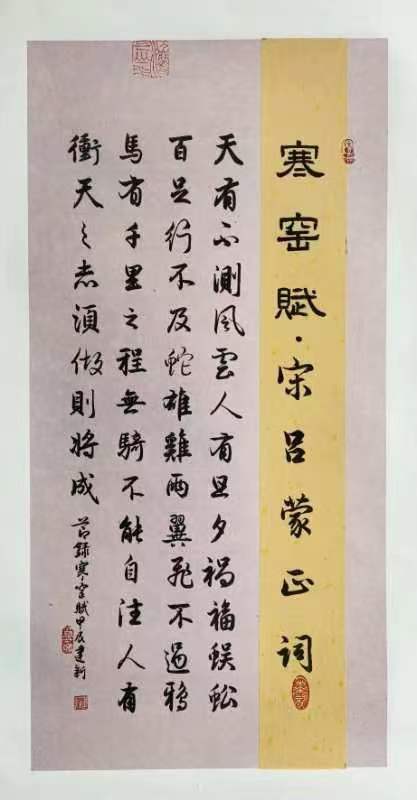 寒窑賦·宋吕蒙正詞
天有不測風雲人有旦夕禍福蜈蚣
百足行不及蛇雄雞兩翼飛不過鴉
馬有千里之程無騎不能自往人有
衝天之志須做則將成
節録寒窑賦甲辰建新